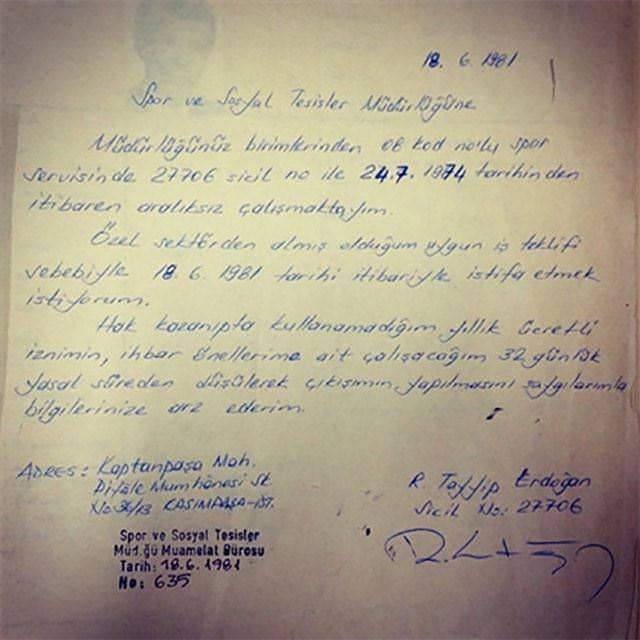 18. 6. 1981
Spor ve Sosyal Tesisler Müdürlüğüne
Müdürlüğünüz birimlerinden 08 kod no'lu spor
servisinde 27706 sicil no ile 24.7.1974 tarihinden
itibaren aralıksız çalışmaktayım.
Özel sektörden almış olduğum uygun iş teklifi
sebebiyle 18. 6. 1981 tarihi itibariyle istifa etmek
istiyorum.
Hak kazanıpta kullanamadığım yıllık ücretli
iznimin, ihbar önellerime ait çalışacağım 32 günlük
yasal süreden düşülerek çıkışımın, yapılmasını saygılarımla
bilgilerinize arz ederim.
ADRES: Kaptanpaşa Mah.
Piyale Mumhanesi Sk.
KASIMPAŞA-İST.
R. Tayyip Erdoğan
Sicil No: 27706
Spor ve Sosyal Tesisler
Müd.ğü Muamelat Bürosu
Tarih: 18.6.1981
No: 635